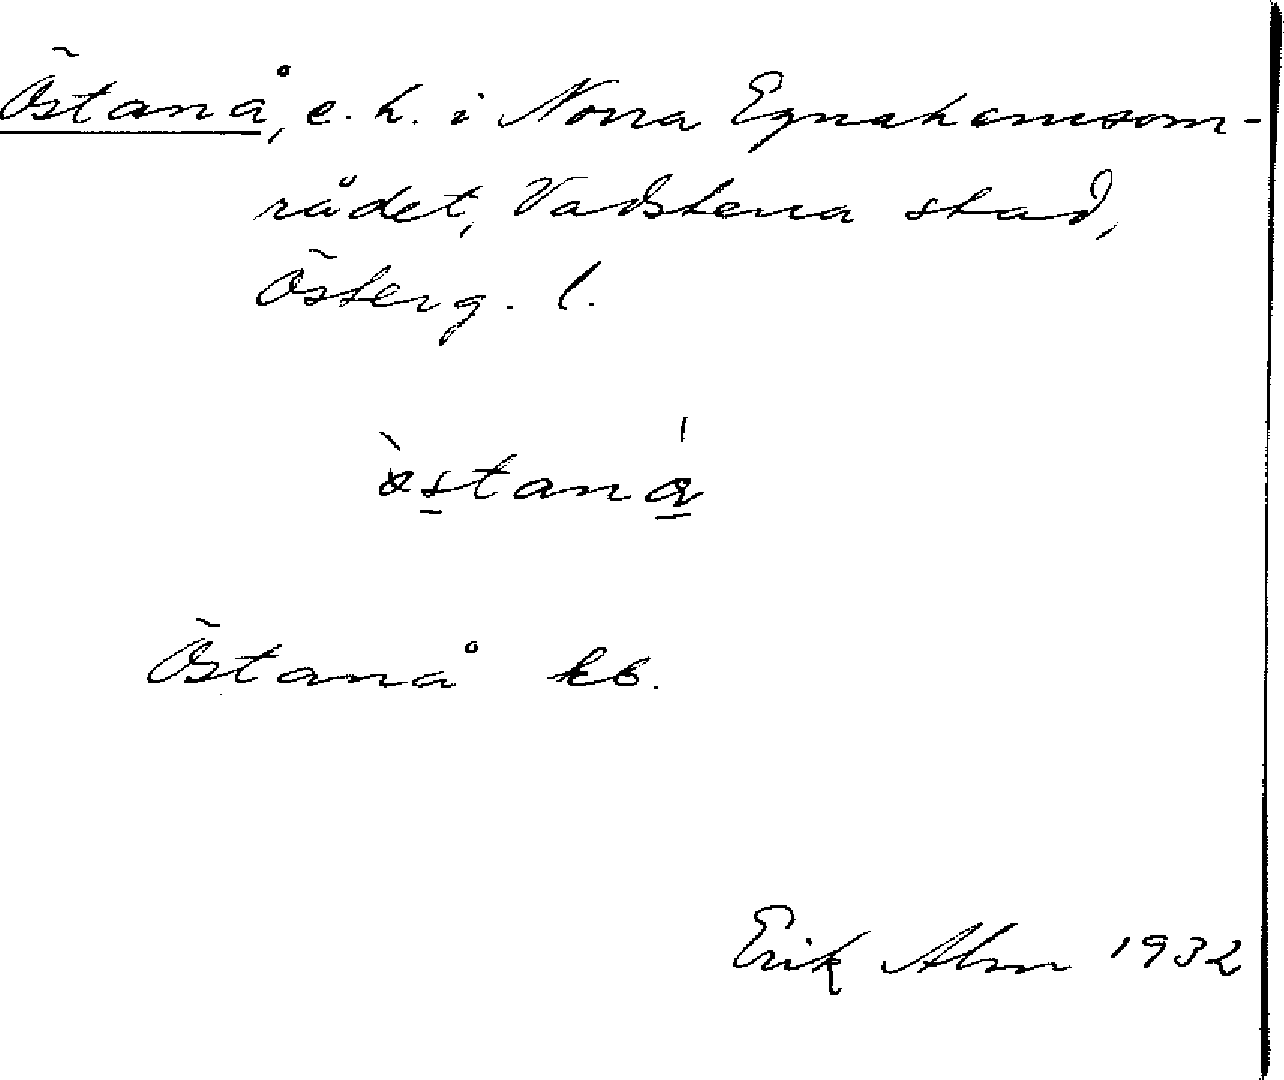 Östanå, e. h. i Norra Egnahemsom-
rådet, Vadstena stad,
Österg. l.
östanå
Östanå kb.
Erik Alm 1932